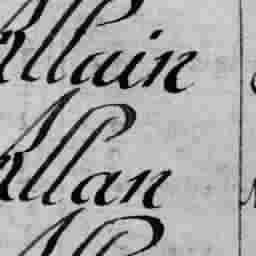 Allain
Allan